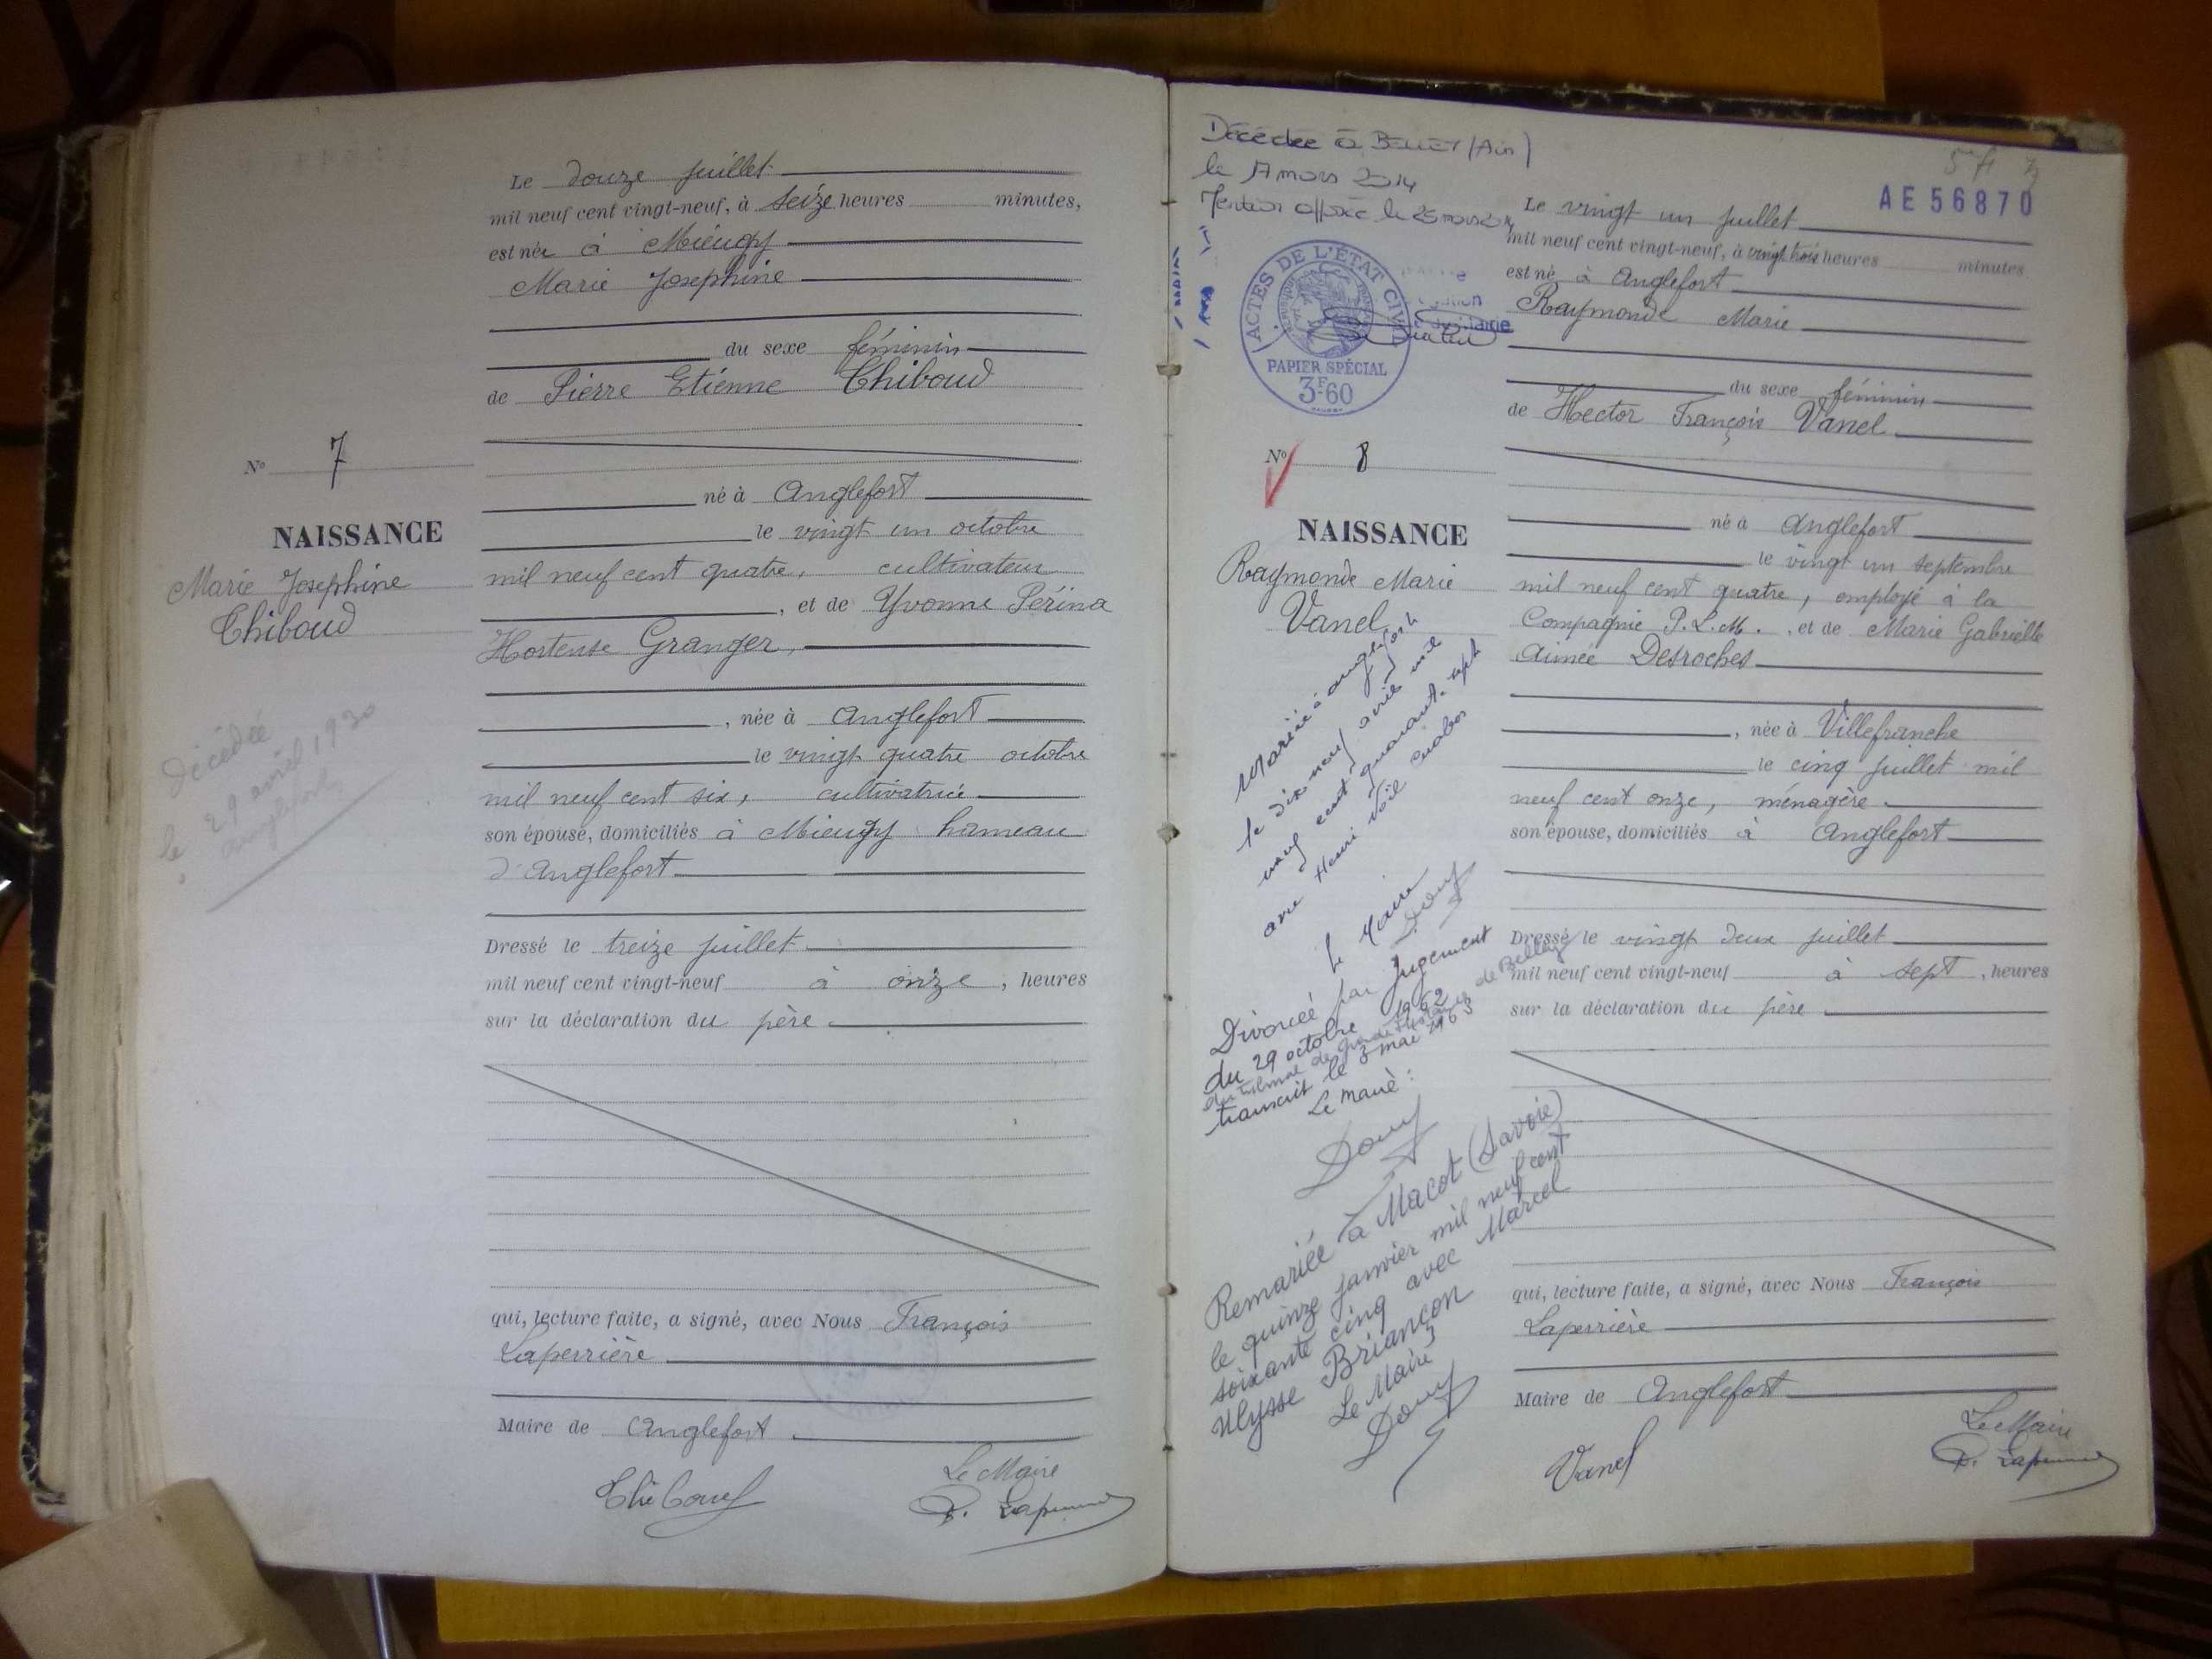 Le douze juillet
mil neuf cent vingt-neuf, à seize heures minutes,
est née à Mieugy
Marie Josephine
du sexe féminin
de Pierre Etienne Thiboud
né à Anglefort
le vingt un octobre
mil neuf cent quatre, cultivateur
, et de Yvonne Périna
Hortense Granger,
, née à Anglefort
le vingt quatre octobre
mil neuf cent six, cultivatrice
son épouse, domiciliés à Mieugy hameau
d'Anglefort
Dressé le treize juillet
mil neuf cent vingt-neuf à onze, heures
sur la déclaration du père
qui, lecture faite, a signé, avec Nous François
Laperrière
Maire de Anglefort
Thiboud
Le Maire
Nº 7
NAISSANCE
Marie Josephine
Thiboud
Décédée
le 29 avril 1930
Anglefort
Décédée à BELLEY (Ain)
le 17 mars 2014
Mention apposée le 25 mars 2014
ACTES DE L'ÉTAT CIVIL
PAPIER SPÉCIAL
3F60
Nº 8
NAISSANCE
Raymonde Marie
Vanel
Mariée à Anglefort
le dix neuf avril mil
neuf cent quarante sept
avec Henri Noël
le Maire
Douy
Divorcée par jugement
du 29 octobre 1962
du tribunal de grande instance de Belley
transcrit le 3 mai 1963
Le Maire :
Douy
Remariée à Macot (Savoie)
le quinze janvier mil neuf cent
soixante cinq avec Marcel
Ulysse Briançon
Le Maire
Douy
AE 56870
Le vingt un juillet
mil neuf cent vingt-neuf, à vingt trois heures minutes
est né à Anglefort
Raymonde Marie
du sexe féminin
de Hector François Vanel
né à Anglefort
le vingt un septembre
mil neuf cent quatre, employé à la
Compagnie P.L.M. , et de Marie Gabrielle
Aimée Desroches
, née à Villefranche
le cinq juillet mil
neuf cent onze, ménagère
son épouse, domiciliés à Anglefort
Dressé le vingt deux juillet
mil neuf cent vingt-neuf à sept, heures
sur la déclaration du père
qui, lecture faite, a signé, avec Nous François
Laperrière
Maire de Anglefort
Vanel
Le Maire